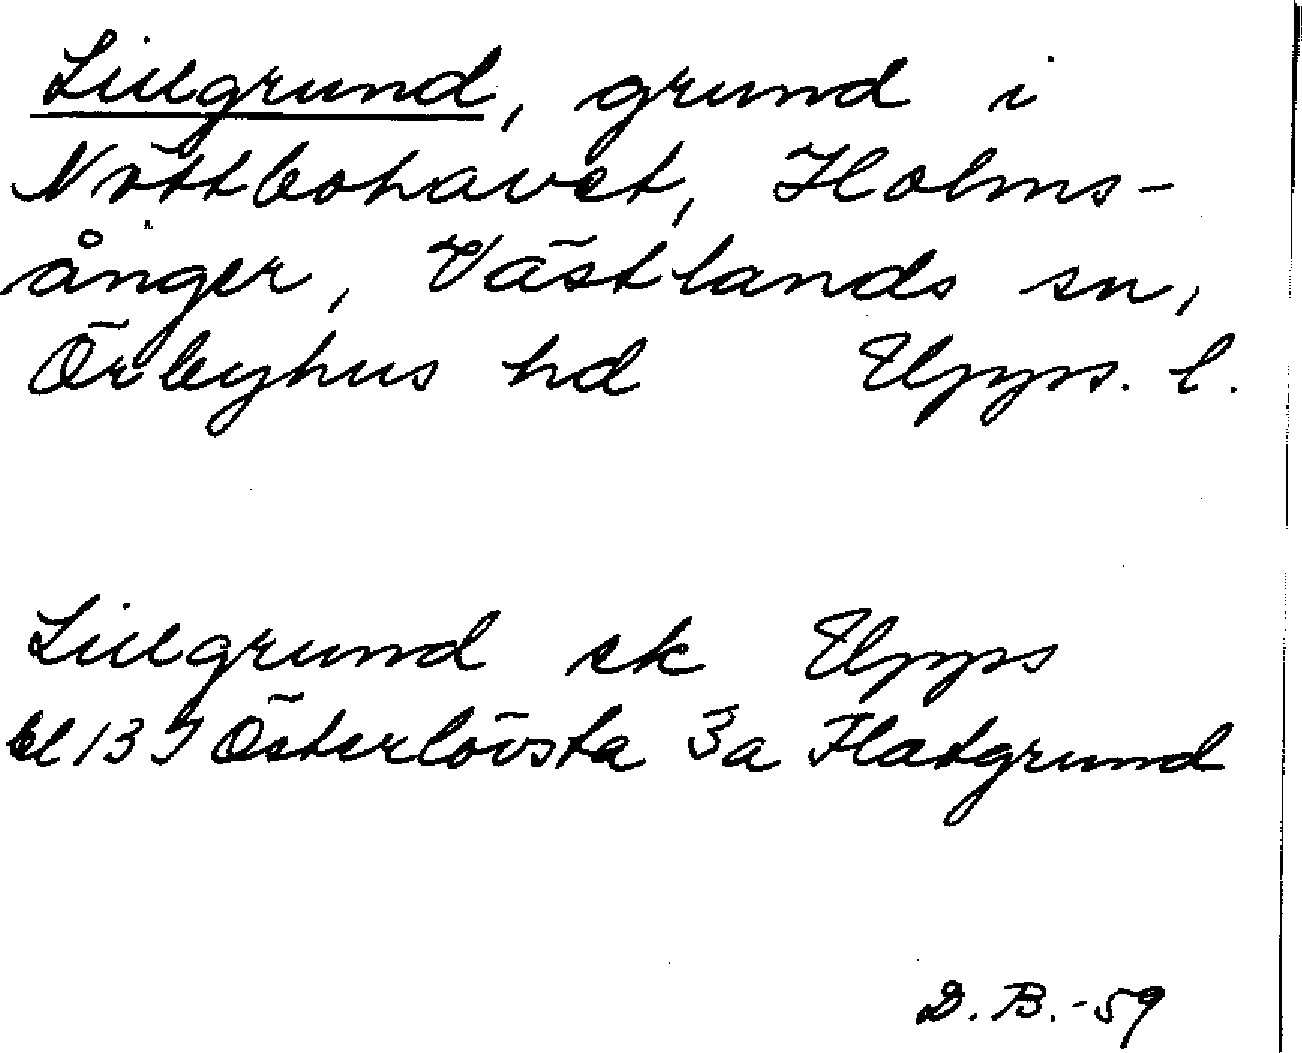 Lillgrund, grund i
Nöttbohavet, Holms-
ånger, Västlands sn,
Örbyhus hd Upps. l.
Lillgrund ek Upps
bl 13 I Österlövsta 3a Flatgrund
D. B. -59